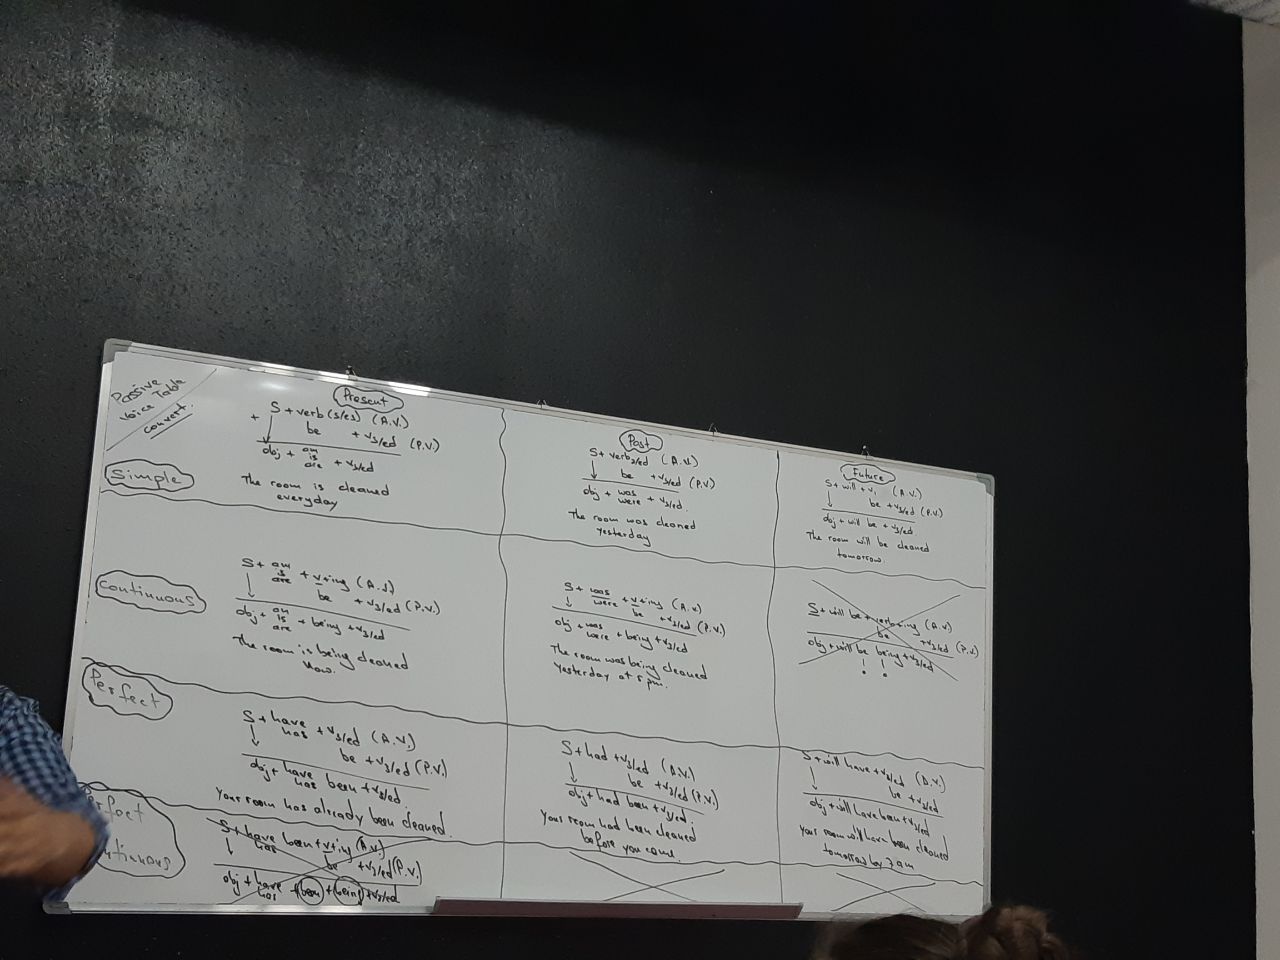 Passive
Voice Table
convert.
Present
Past
Future
Simple
+ S + verb (s/es) (A.V.)
be + v3/ed (P.V.)
obj + am is are + v3/ed
The room is cleaned
everyday
S + verb2/ed (A.V.)
be + v3/ed (P.V.)
obj + was were + v3/ed.
The room was cleaned
yesterday
S + will + v1 (A.V.)
be + v3/ed (P.V.)
obj + will be + v3/ed
The room will be cleaned
tomorrow.
Continuous
S + am is are + v+ing (A.V.)
be + v3/ed (P.V.)
obj + am is are + being + v3/ed
The room is being cleaned
now.
S + was were + v+ing (A.V.)
be + v3/ed (P.V.)
obj + was were + being + v3/ed
The room was being cleaned
yesterday at 5 pm.
S + will be + verb+ing (A.V.)
be + v3/ed (P.V.)
obj + will be being + v3/ed
! !
Perfect
S + have has + v3/ed (A.V.)
be + v3/ed (P.V.)
obj + have has been + v3/ed
Your room has already been cleaned.
S + had + v3/ed (A.V.)
be + v3/ed (P.V.)
obj + had been + v3/ed.
Your room had been cleaned
before you came.
S + will have + v3/ed (A.V.)
be + v3/ed
obj + will have been + v3/ed
Your room will have been cleaned
tomorrow by 7 am
S + have has been + v+ing (A.V.)
be + v3/ed (P.V.)
obj + have has + been + being + v3/ed